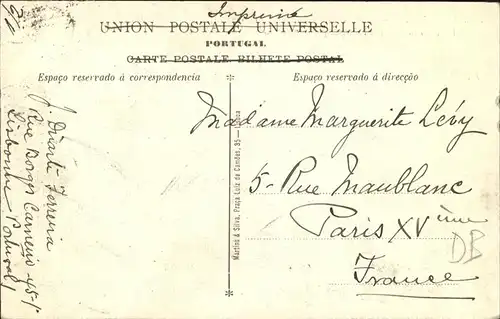 Imprimé
UNION POSTALE UNIVERSELLE
PORTUGAL
CARTE POSTALE BILHETE POSTAL
Espaço reservado á correspondencia
Espaço reservado á direcção
J. Duarte Ferreira
Rue Borges Carneiro 45-1º
Lisbonne Portugal
Martins & Silva, Praça Luiz de Camões, 35 — Lisboa
Madame Marguerite Levy
5- Rue Maublanc
Paris XVième
France
DB